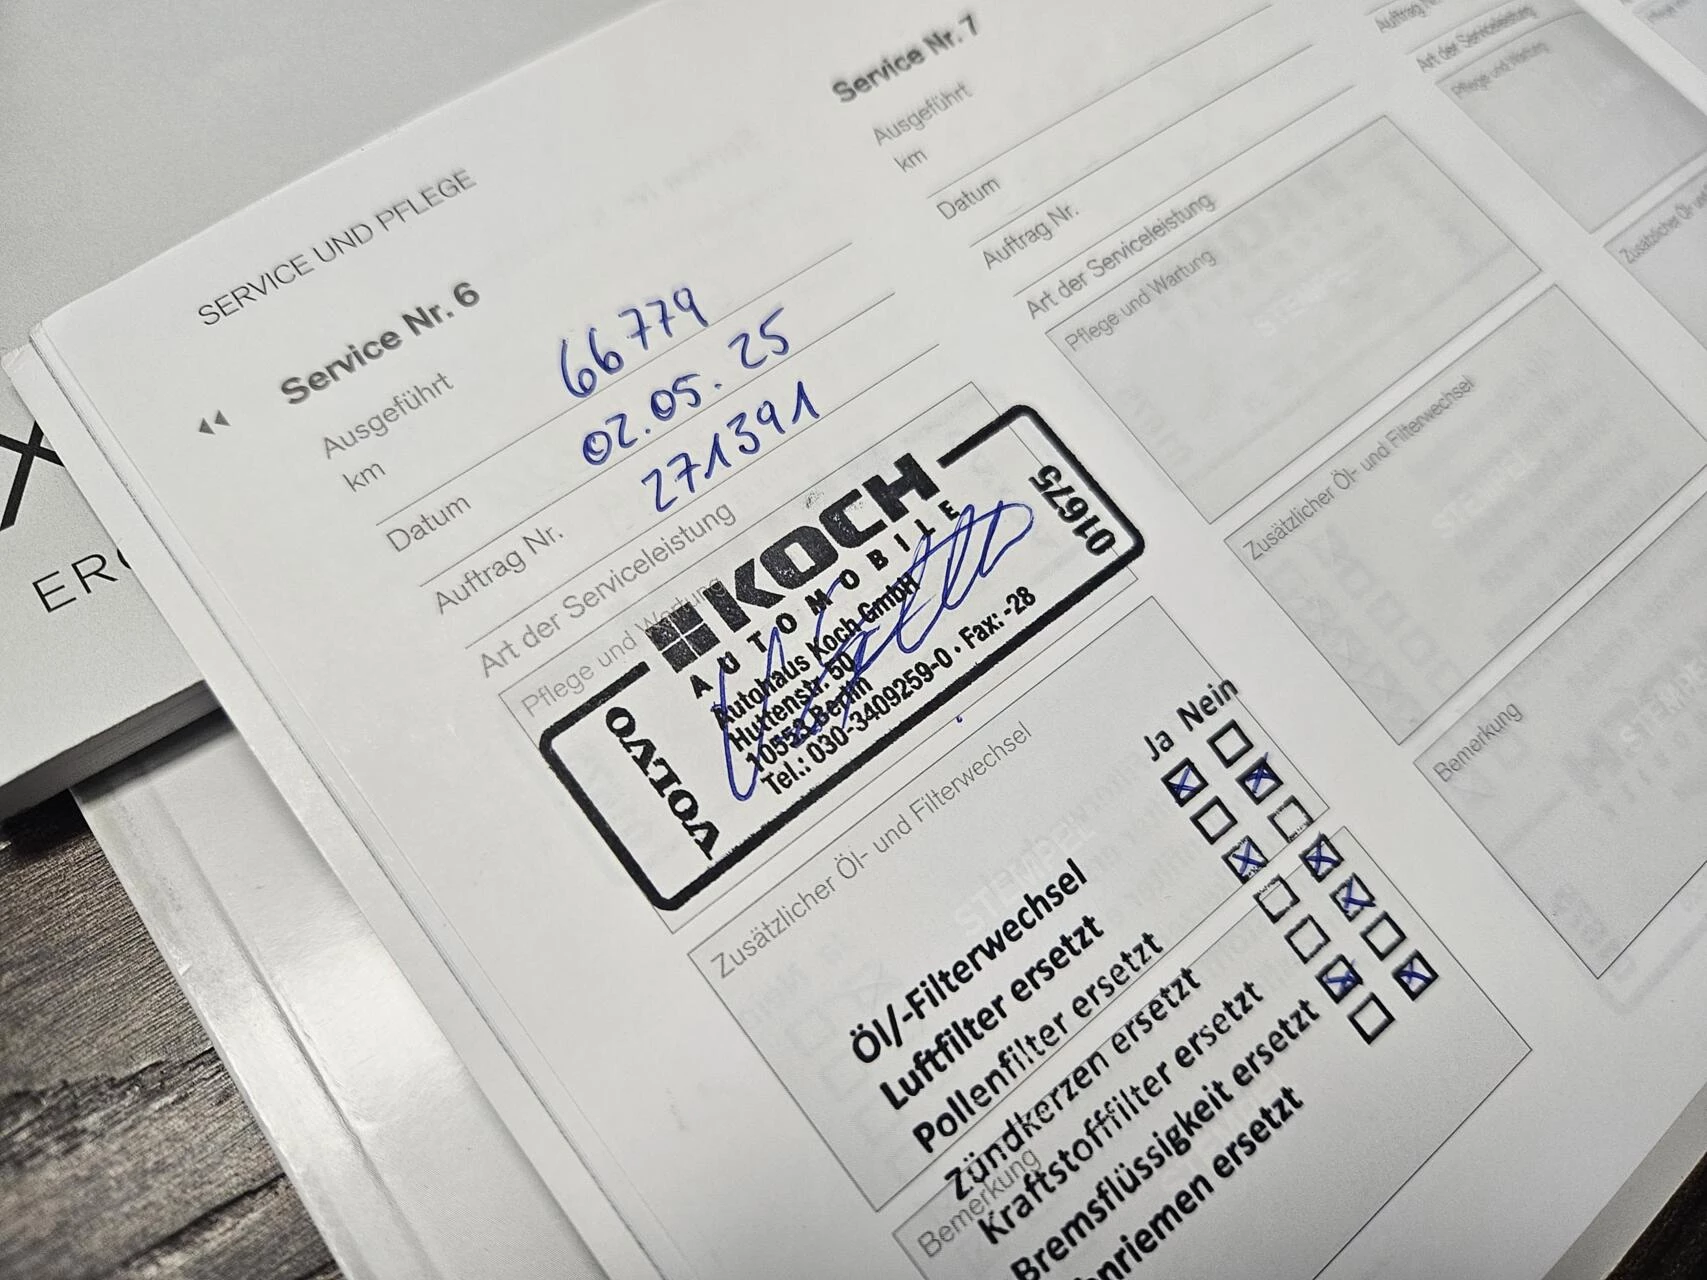 SERVICE UND PFLEGE
Service Nr. 6
Ausgeführt
km 66779
Datum 02.05.25
Auftrag Nr. 271391
Art der Serviceleistung
Pflege und Wartung
VOLVO
KOCH
AUTOMOBILE
Autohaus Koch GmbH
Huttenstr. 50
10553 Berlin
Tel.: 030-3409259-0 · Fax: -28
01675
Zusätzlicher Öl- und Filterwechsel
Ja Nein
Öl/-Filterwechsel
Luftfilter ersetzt
Pollenfilter ersetzt
Zündkerzen ersetzt
Kraftstofffilter ersetzt
Bremsflüssigkeit ersetzt
nriemen ersetzt
Bemerkung
Service Nr. 7
Ausgeführt
km
Datum
Auftrag Nr.
Art der Serviceleistung
Pflege und Wartung
STEMPEL
Zusätzlicher Öl- und Filterwechsel
STEMPEL
Bemerkung
Auftrag Nr.
Art der Serviceleistung
Pflege und Wartung
Zusätzlicher Öl-